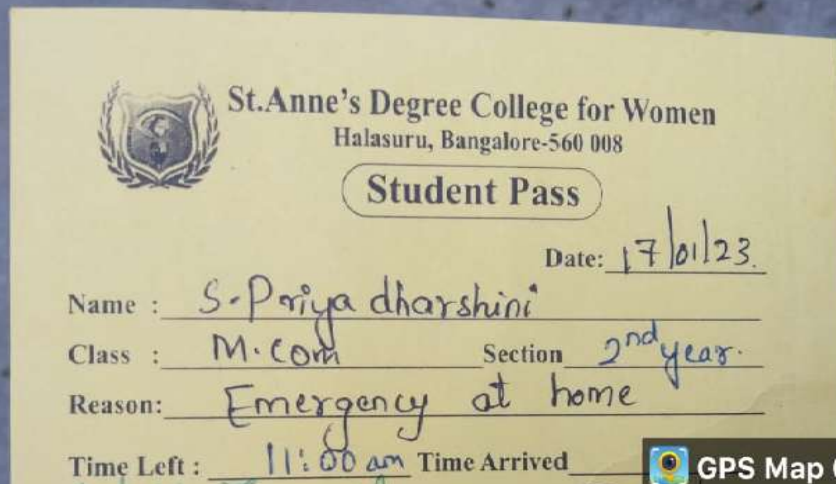 St.Anne's Degree College for Women
Halasuru, Bangalore-560 008
Student Pass
Date: 17/01/23.
Name : S. Priya dharshini
Class : M.com Section 2nd year.
Reason: Emergency at home
Time Left : 11:00 am Time Arrived
GPS Map